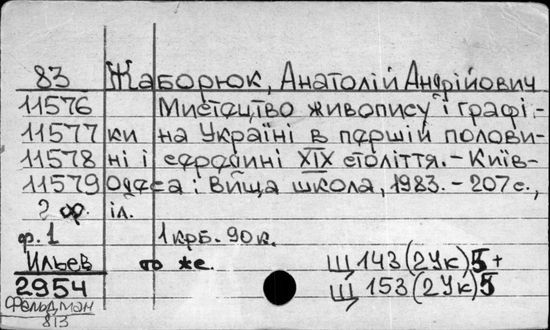 83 Жаборюк, Анатолій Андрійович
11576 Мистецтво живопису і графі-
11577 ки на Україні в першій полови-
11578 ні і середині XIX століття. - Київ-
11579 Одеса: Вища школа, 1983. - 207 с.,
2 ф. іл.
ф. 1 1 крб. 90 к.
Ильев то же. Щ 143(2Ук)5+
2954 Щ 153(2Ук)5
Фельдман
813